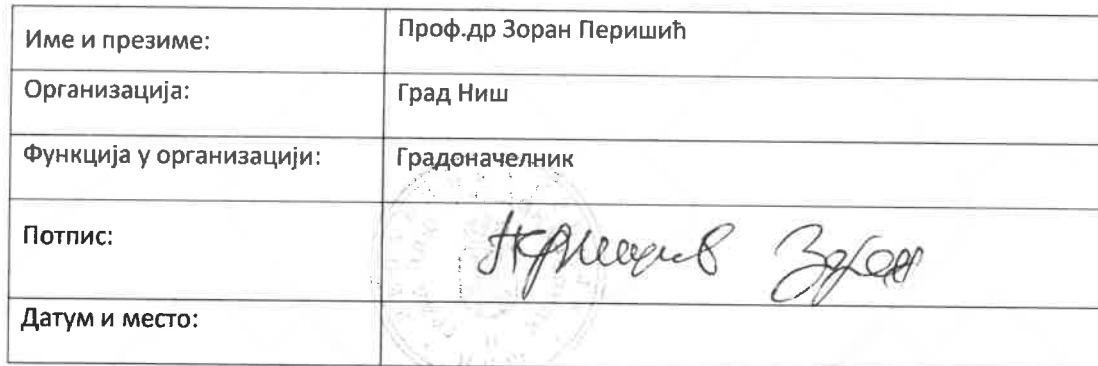 Име и презиме:
Проф.др Зоран Перишић
Организација:
Град Ниш
Функција у организацији:
Градоначелник
Потпис:
Датум и место: